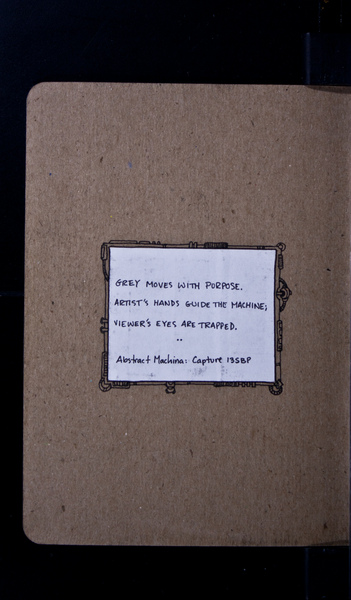 GREY MOVES WITH PURPOSE.
ARTIST'S HANDS GUIDE THE MACHINE;
VIEWER'S EYES ARE TRAPPED.
..
Abstract Machina: Capture 13SBP